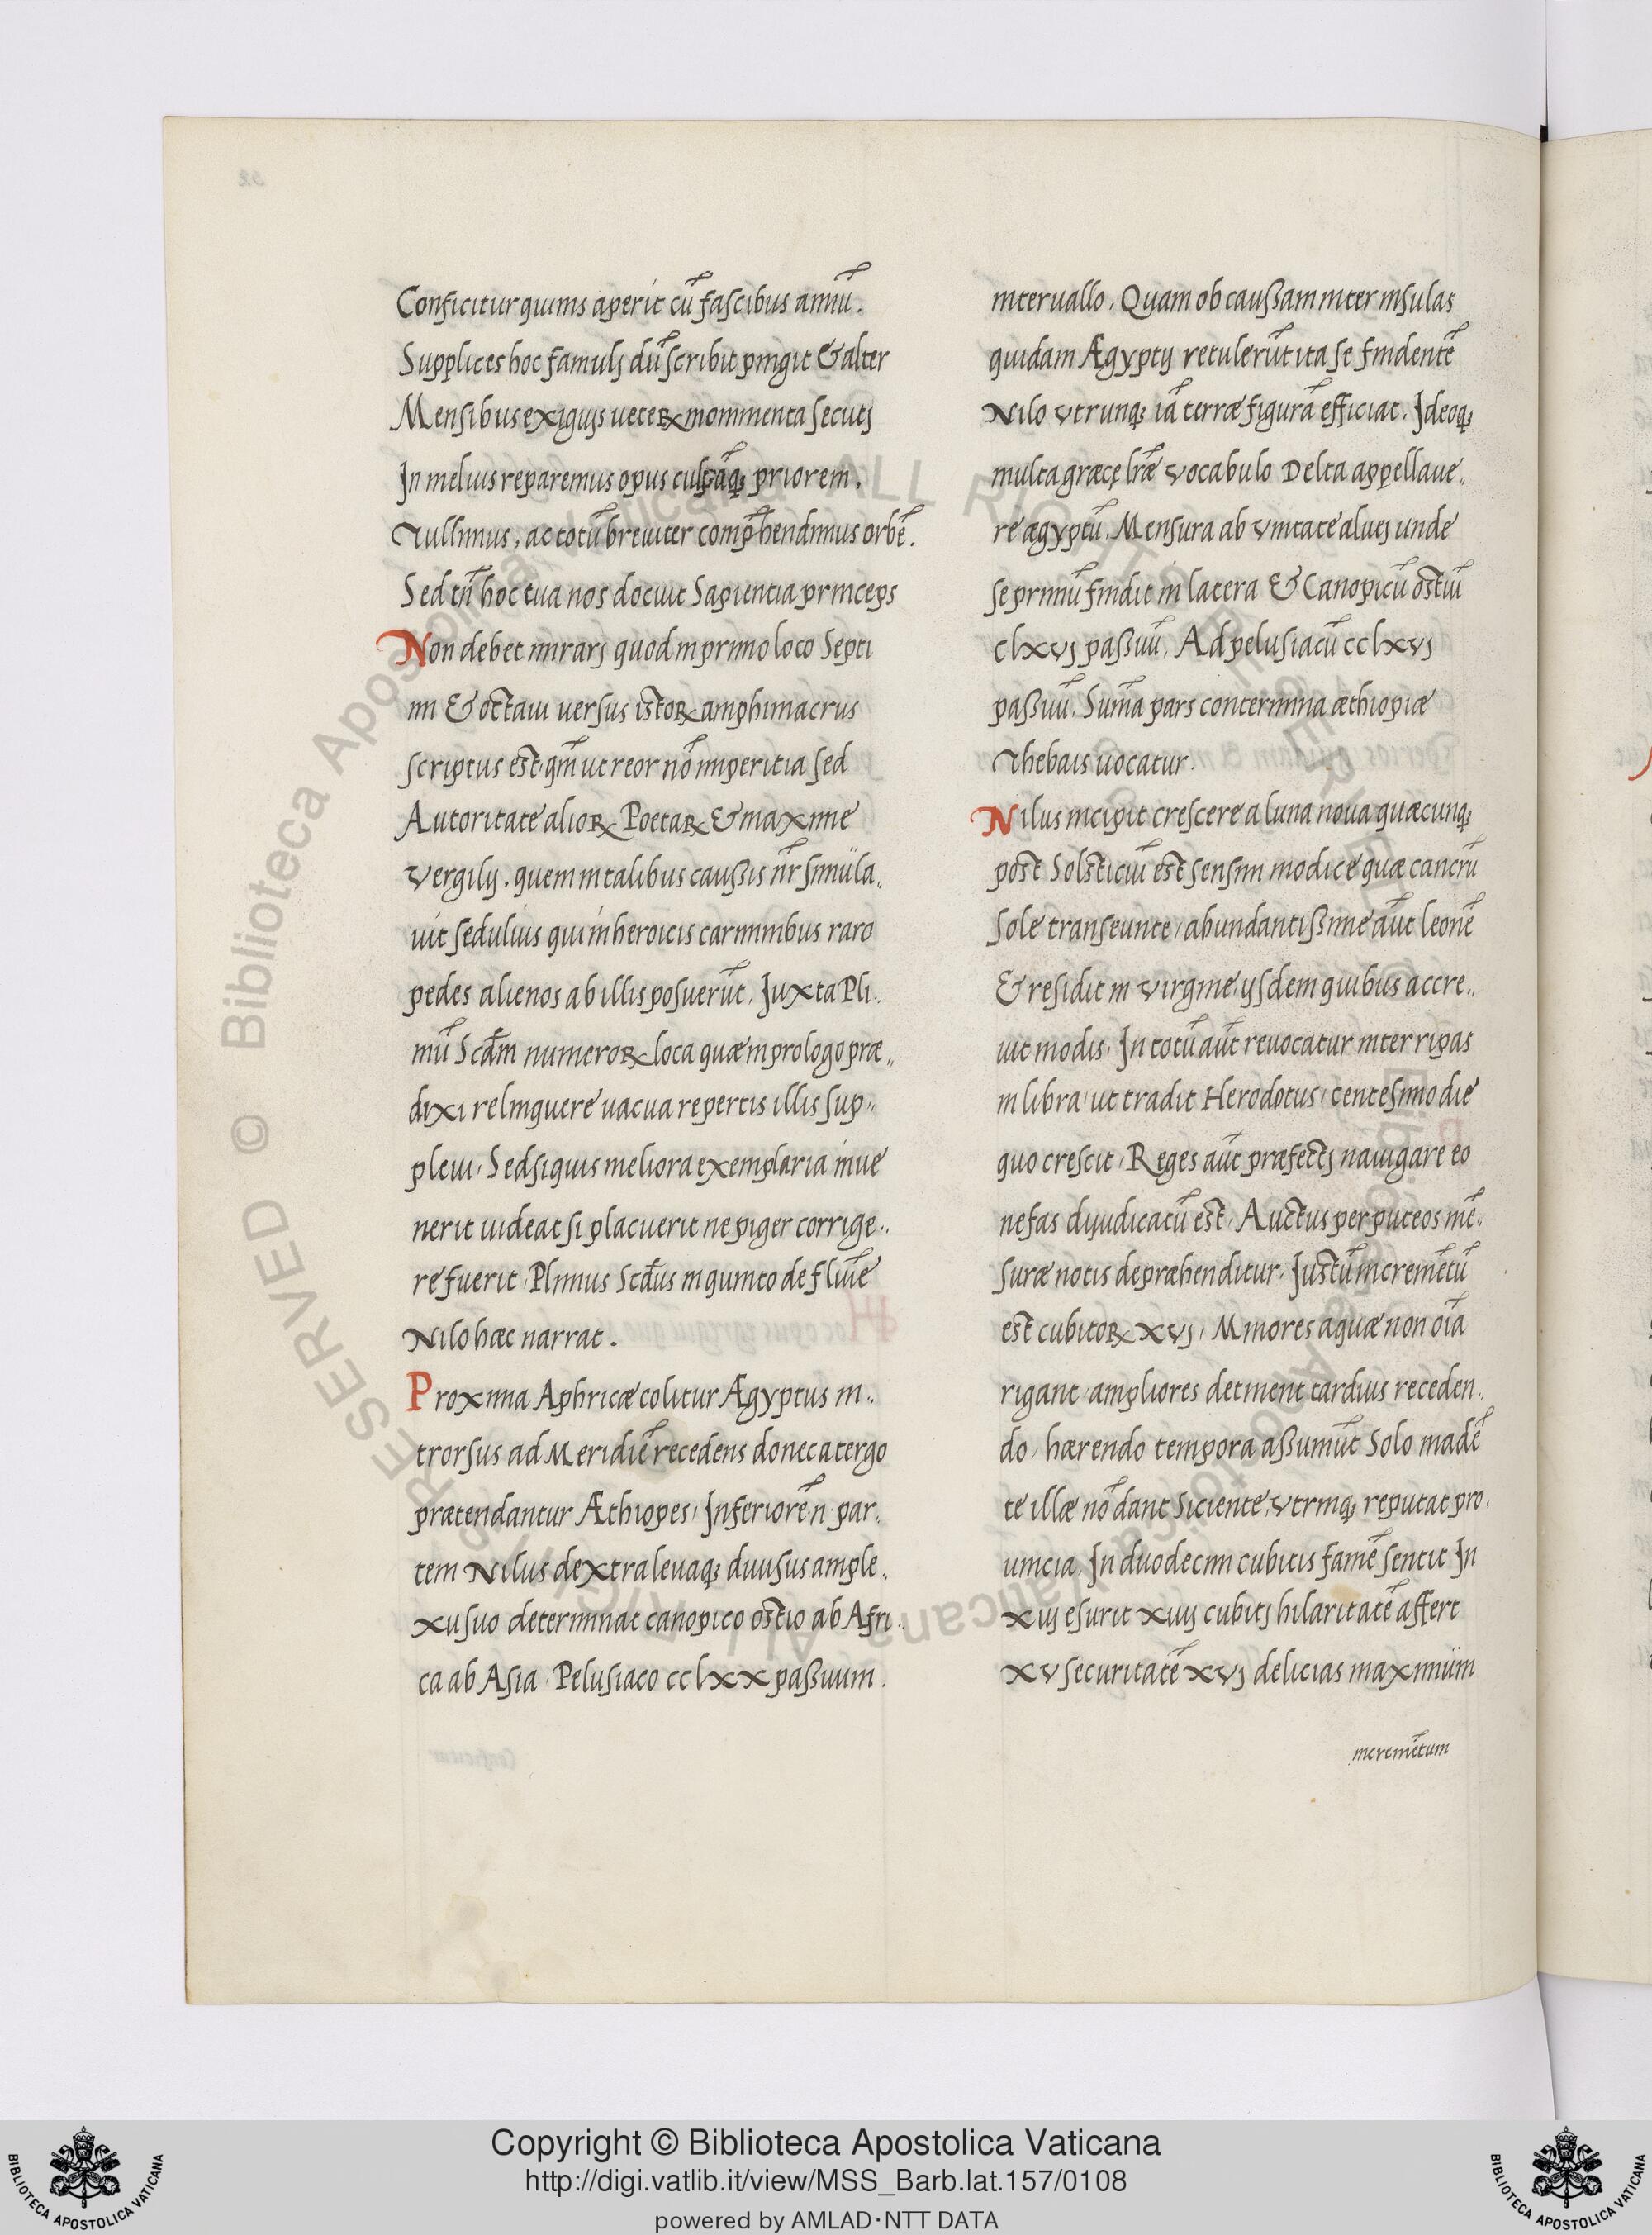 Conficitur quinis aperit cū fascibus annū.
Supplices hoc famulj dū scribit pingit & alter
Mensibus exiguis ueteꝝ monimenta secutj
In melius reparemus opus culpāq; priorem.
Tullimus, ac totū breuiter comp̄hendimus orbē.
Sed tn̄ hoc tua nos docuit Sapientia princeps
Non debet mirarj quod in primo loco Septi
mi & octaui uersus istoꝝ amphimacrus
scriptus est qm̄ ut reor nō imperitia sed
Autoritate alioꝝ Poetaꝝ & maxime
Vergilij. quem in talibus caußis nr̄ simula„
uit sedulius qui in heroicis carminibus raro
pedes alienos ab illis posuerūt. Juxta Pli„
niū Scd̄m numeroꝝ loca quæ in prologo præ„
dixi relinquere uacua repertis illis sup„
pleui. Sed siquis meliora exemplaria inue
nerit uideat si placuerit ne piger corrige„
re fuerit. Plinius Scd̄us in quinto de fluīe
Nilo hæc narrat.
Proxima Aphricæ colitur Ægyptus in„
trorsus ad Meridiē recedens donec a tergo
prætendantur Æthiopes. Inferiorē n̄ par„
tem Nilus dextra leuaq; diuisus ample„
xu suo determinat canopico ostio ab Afri„
ca ab Asia. Pelusiaco cclxx paßuum.
interuallo. Quam ob caußam inter insulas
quidam Ægyptij retulerūt ita se findentē
Nilo vtrunq; iā terræ figurā efficiat. Ideoq;
multa græcę lr̄æ vocabulo Delta appellaue„
re ægyptū. Mensura ab vnitate aluej unde
se primū findit in latera & Canopicū ostiū
clxvj paßuū. Ad pelusiacū cclxvj
paßuū. Sum̄a pars contermina æthiopiæ
Thebais uocatur.
Nilus incipit crescere a luna noua quæcunq;
post Solsticiū est sensim modice quæ cancrū
Sole transeunte abundantißime aūt leonē
& residit in virgine ijsdem quibus accre„
uit modis. In totū aūt reuocatur inter ripas
in libra ut tradit Herodotus centesimo die
quo crescit. Reges aūt præfectj nauigare eo
nefas dijudicatū est. Auctus per puteos mē„
suræ notis depræhenditur. Justū incremētū
est cubitoꝝ xvj. Minores aquæ non oīa
rigant ampliores detinent tardius receden„
do, hærendo tempora aßumūt Solo madē
te illæ nō dant Siciente. vtrinq; reputat pro„
uincia In duodecim cubitis famē sentit In
xiij esurit xiiij cubitj hilaritatē affert
xv securitatē xvj delicias maximum
incremētum
Copyright © Biblioteca Apostolica Vaticana
http://digi.vatlib.it/view/MSS_Barb.lat.157/0108
powered by AMLAD·NTT DATA